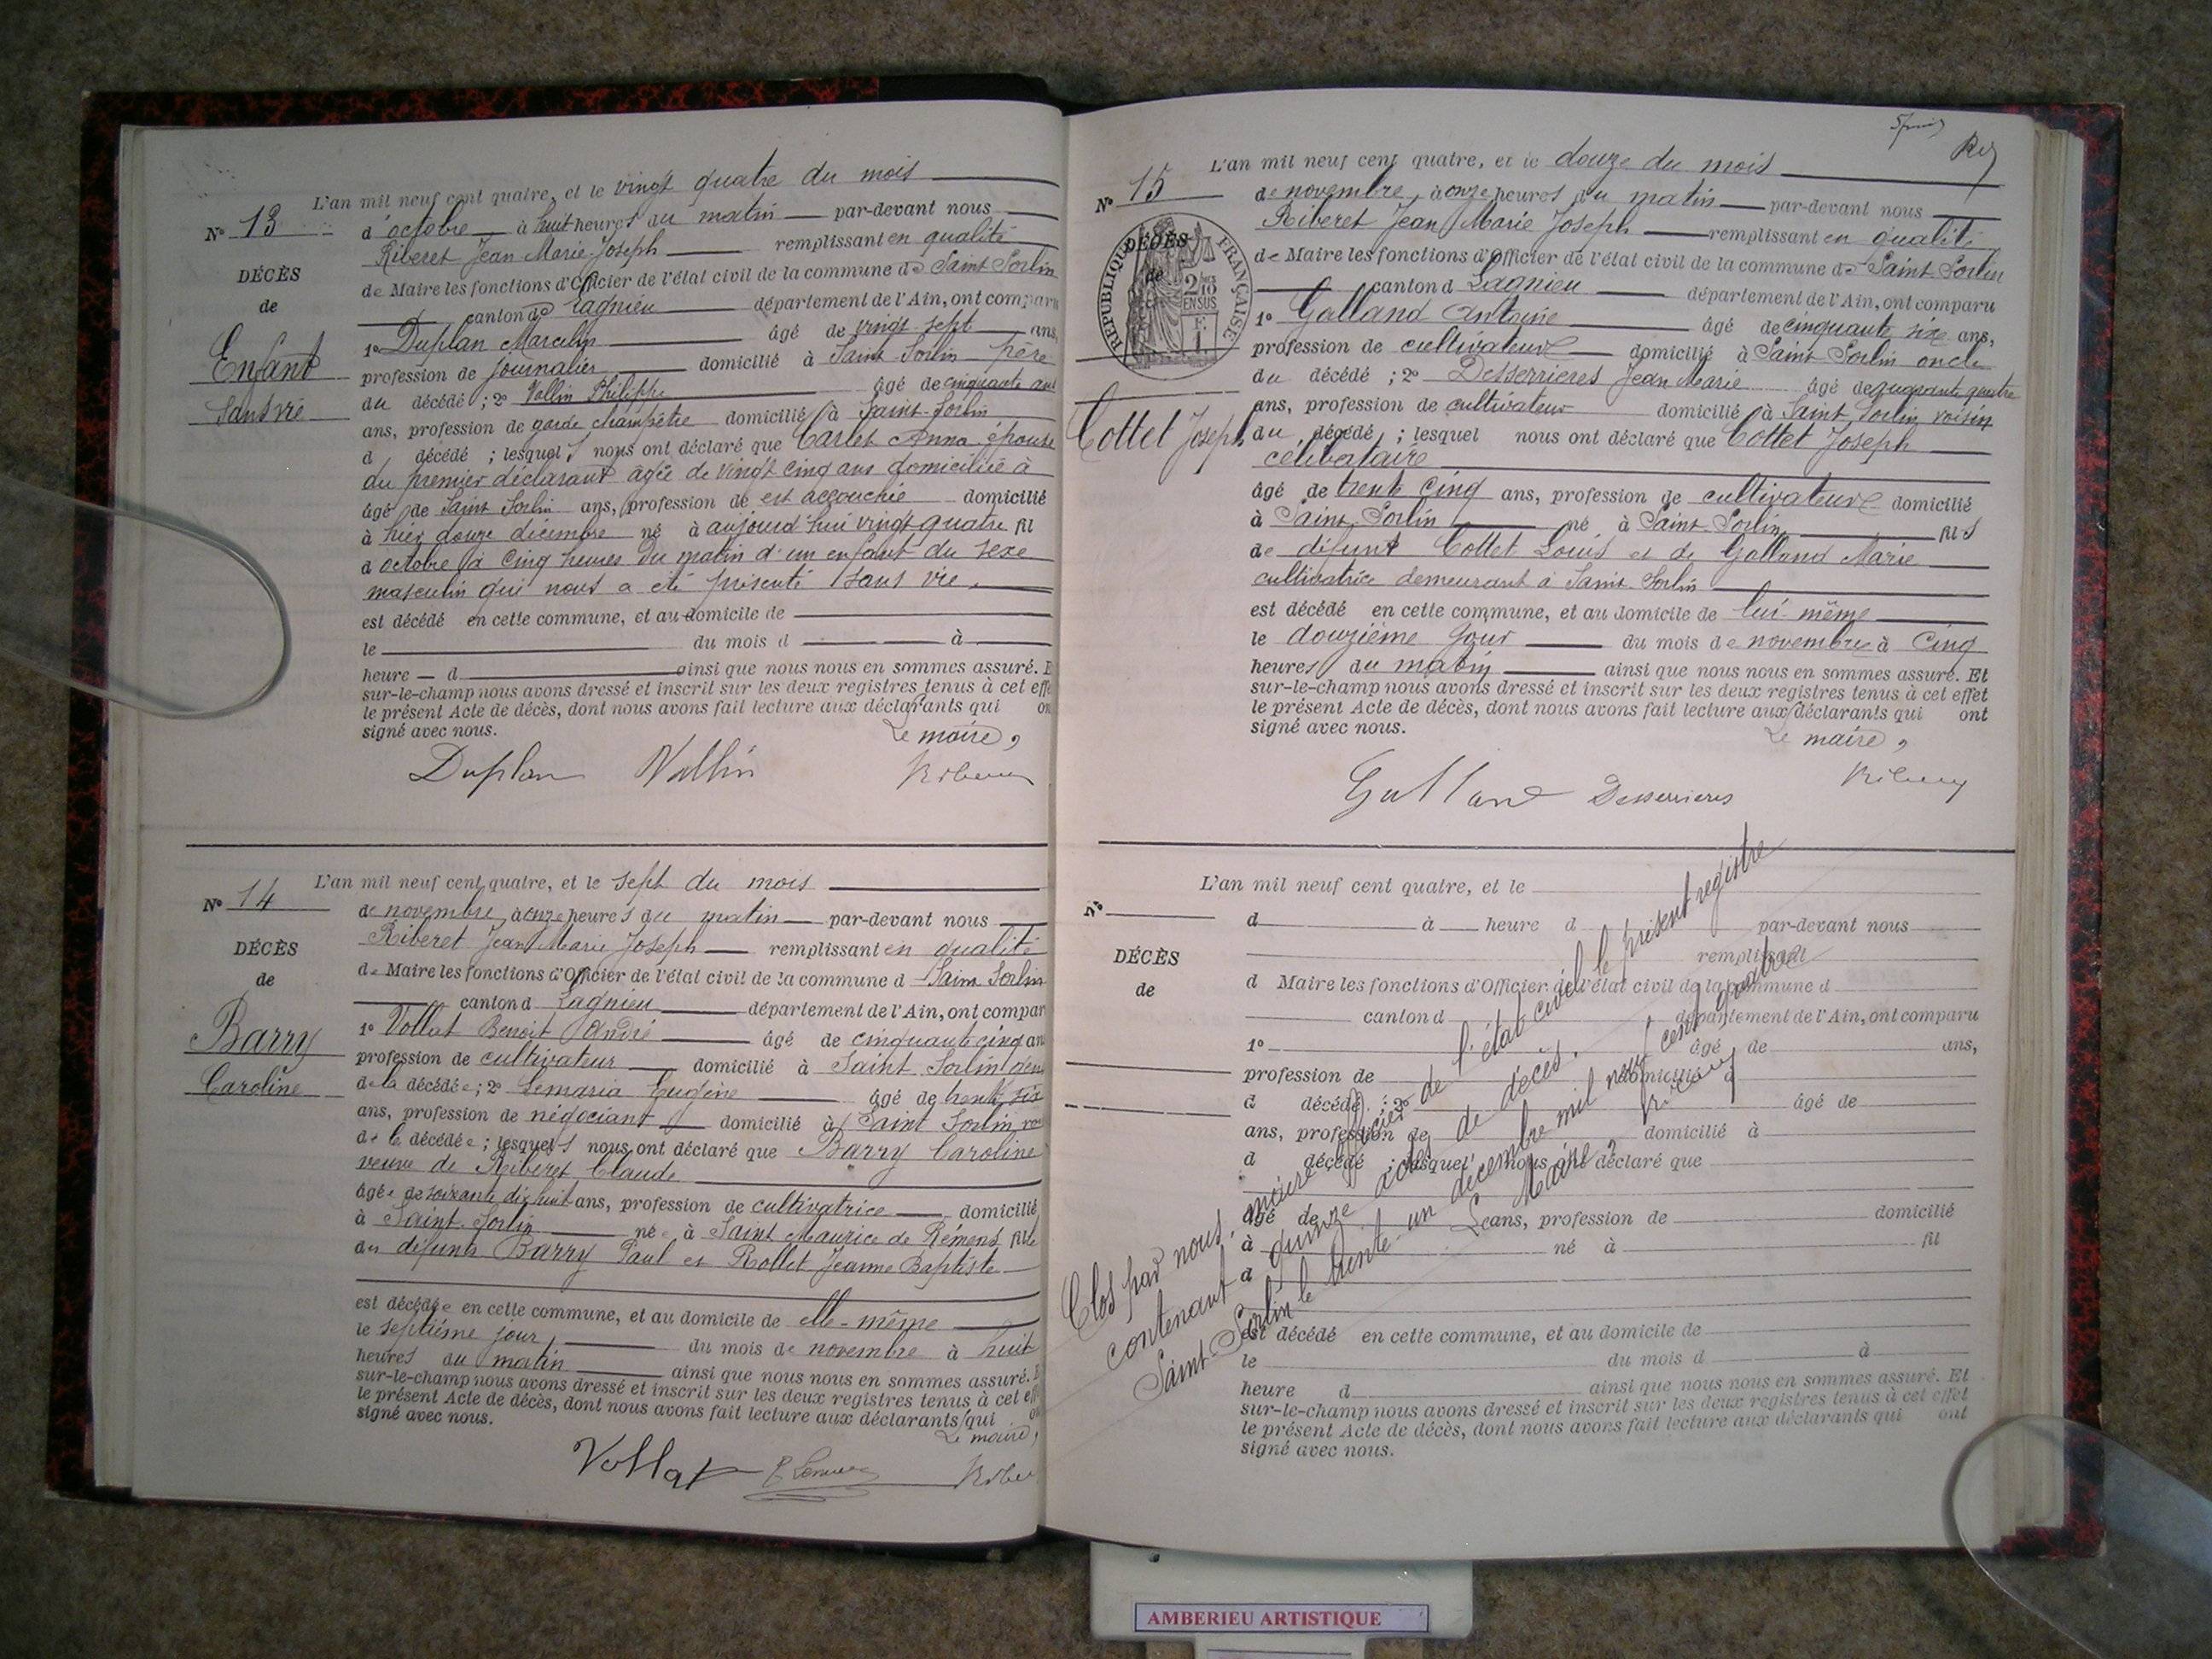 L'an mil neuf cent quatre, et le vingt quatre du mois
N° 13 d'octobre à huit heures du matin par-devant nous
Riberet Jean Marie Joseph remplissant en qualité
DÉCÈS
de Maire les fonctions d'Officier de l'état civil de la commune de Saint Sorlin
de
canton de Lagnieu département de l'Ain, ont comparu
Enfant
sans vie
1° Duplan Marcelin âgé de vingt sept ans,
profession de journalier domicilié à Saint-Sorlin père
du décédé ; 2° Vallin Philippe âgé de cinquante ans
ans, profession de garde champêtre domicilié à Saint-Sorlin
d décédé ; lesquels nous ont déclaré que Carlet Anna épouse
du premier déclarant âgée de vingt cinq ans domiciliée à
âgé de Saint Sorlin ans, profession de est accouchée domicilié
à hier douze décembre né à aujourd'hui vingt quatre fil
d octobre à cinq heures du matin d'un enfant du sexe
masculin qui nous a été présenté sans vie.
est décédé en cette commune, et au domicile de
le du mois d à
heure d ainsi que nous nous en sommes assuré. E
sur-le-champ nous avons dressé et inscrit sur les deux registres tenus à cet effe
le présent Acte de décès, dont nous avons fait lecture aux déclarants qui on
signé avec nous. Le maire,
Duplan Vallin
L'an mil neuf cent quatre, et le sept du mois
N° 14 de novembre, à onze heures du matin par-devant nous
Riberet Jean Marie Joseph remplissant en qualité
DÉCÈS
de Maire les fonctions d'Officier de l'état civil de la commune d Saint Sorlin
de
canton d Lagnieu département de l'Ain, ont compar
Barry
Caroline
1° Vollat Benoit André âgé de cinquante cinq an
profession de cultivateur domicilié à Saint Sorlin
de la décédée ; 2° Lemaria Eugène âgé de trente six
ans, profession de négociant domicilié à Saint Sorlin
de la décédée ; lesquels nous ont déclaré que Barry Caroline
veuve de Riberet Claude
âgée de soixante dix huit ans, profession de cultivatrice domicilié
à Saint-Sorlin née à Saint Maurice de Rémens fille
des défunts Barry Paul et Rollet Jeanne Baptiste
est décédée en cette commune, et au domicile de elle-même
le septième jour du mois de novembre à huit
heures du matin ainsi que nous nous en sommes assuré. E
sur-le-champ nous avons dressé et inscrit sur les deux registres tenus à cet eff
le présent Acte de décès, dont nous avons fait lecture aux déclarants qui on
signé avec nous. Le maire,
Vollat
L'an mil neuf cent quatre, et le douze du mois
N° 15 de novembre, à onze heures du matin par-devant nous
Riberet Jean Marie Joseph remplissant en qualité
DÉCÈS
de
RÉPUBLIQUE FRANÇAISE
2/10 EN SUS
de Maire les fonctions d'Officier de l'état civil de la commune de Saint Sorlin
canton d Lagnieu département de l'Ain, ont comparu
Cottet Joseph
1° Galland Antoine âgé de cinquante six ans,
profession de cultivateur domicilié à Saint Sorlin oncle
du décédé ; 2° Desserrieres Jean Marie âgé de quarante quatre
ans, profession de cultivateur domicilié à Saint Sorlin voisin
du décédé ; lesquel nous ont déclaré que Cottet Joseph
célibataire
âgé de trente cinq ans, profession de cultivateur domicilié
à Saint-Sorlin né à Saint-Sorlin fils
de défunt Cottet Louis et de Galland Marie
cultivatrice demeurant à Saint-Sorlin
est décédé en cette commune, et au domicile de lui-même
le douzième jour du mois de novembre à cinq
heures du matin ainsi que nous nous en sommes assuré. Et
sur-le-champ nous avons dressé et inscrit sur les deux registres tenus à cet effet
le présent Acte de décès, dont nous avons fait lecture aux déclarants qui ont
signé avec nous. Le maire,
Galland Desserrieres
L'an mil neuf cent quatre, et le
N° d à heure d par-devant nous
remplissant
DÉCÈS
d Maire les fonctions d'Officier de l'état civil de la commune d
de
canton d département de l'Ain, ont comparu
1° âgé de ans,
profession de domicilié à
d décédé ; 2° âgé de
ans, profession de domicilié à
d décédé ; lesquel nous ont déclaré que
âgé de ans, profession de domicilié
à né à fil
d
est décédé en cette commune, et au domicile de
le du mois d à
heure d ainsi que nous nous en sommes assuré. Et
sur-le-champ nous avons dressé et inscrit sur les deux registres tenus à cet effet
le présent Acte de décès, dont nous avons fait lecture aux déclarants qui ont
signé avec nous.
Clos par nous, maire officier de l'état civil le présent registre
contenant quinze actes de décès.
Saint-Sorlin le trente-un décembre mil neuf cent quatre
Le Maire,
AMBERIEU ARTISTIQUE